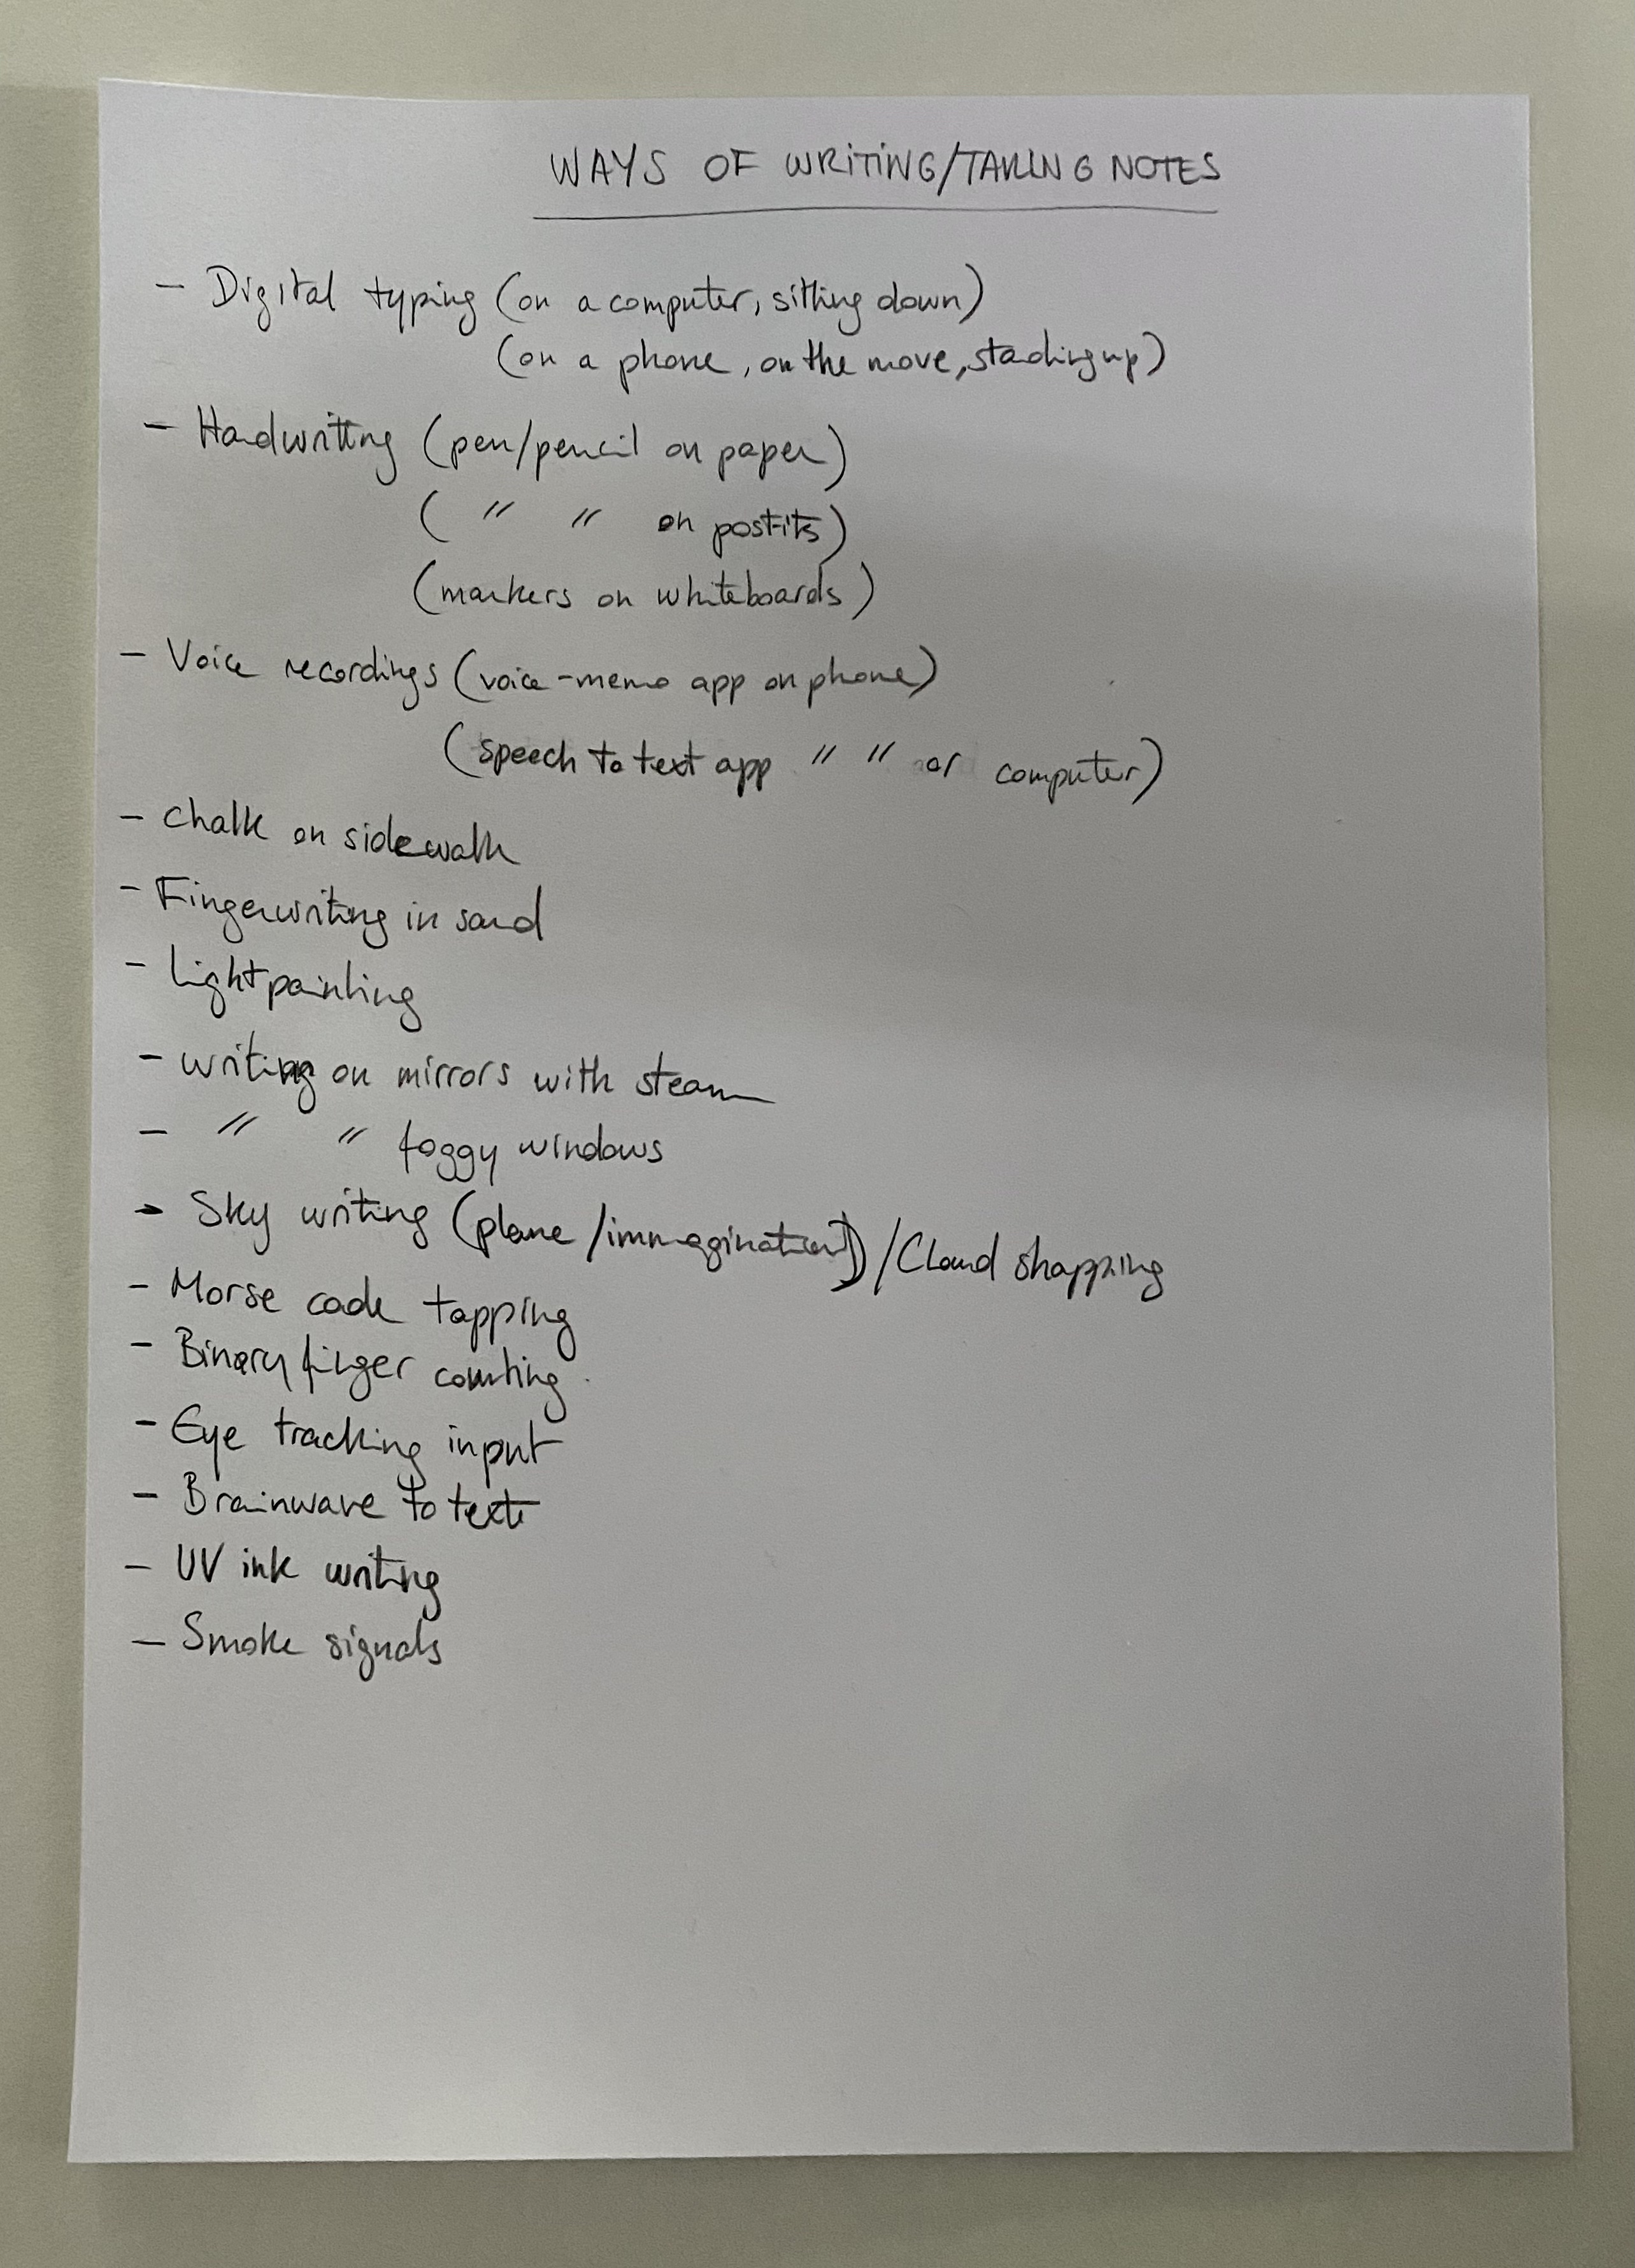 WAYS OF WRITING/TAKING NOTES
- Digital typing (on a computer, sitting down)
(on a phone, on the move, standing up)
- Handwriting (pen/pencil on paper)
( " " on postits)
(markers on whiteboards)
- Voice recordings (voice-memo app on phone)
(speech to text app " " or computer)
- Chalk on sidewalk
- Fingerwriting in sand
- Lightpainting
- writing on mirrors with steam
- " " foggy windows
- Sky writing (plane/immagination)/Cloud shapping
- Morse code tapping
- Binary finger counting
- Eye tracking input
- Brainwave to text
- UV ink writing
- Smoke signals